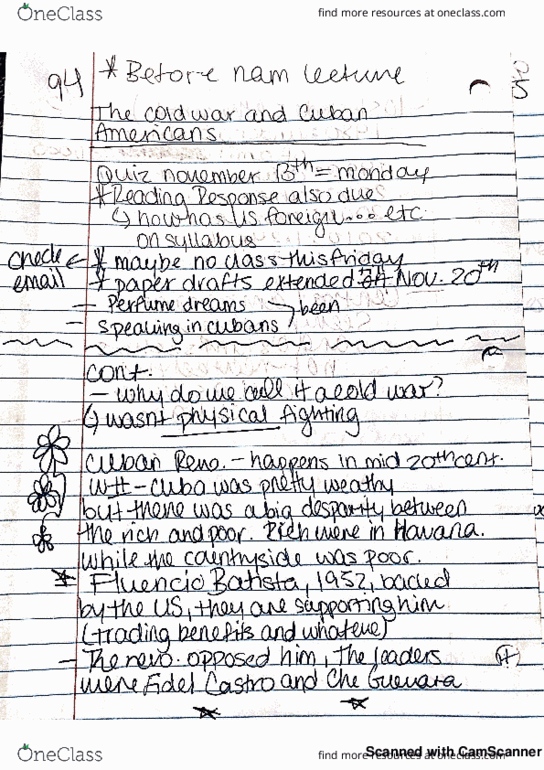 OneClass
find more resources at oneclass.com
94 * Before nam lecture
The cold war and Cuban
Americans
Quiz november 13th = monday
* Reading Response also due
↳ how has US foreign... etc.
on syllabus
check ← * maybe no class this friday
email * paper drafts extended Nov. 20th
- Perfume dreams
- speaking in cubans > been
cont.
- why do we call it a cold war?
↳ wasnt physical fighting
Cuban Revo. - happens in mid 20th cent.
- Cuba was pretty weathy
but there was a big desparity between
the rich and poor. Rich were in Havana.
while the countryside was poor.
* Fluencio Batista, 1952, backed
by the US, they are supporting him
(trading benefits and whateve)
- The revo. opposed him, The leaders
were Fidel Castro and Che Guevara
OneClass
find more resources at oneclass.com
Scanned with CamScanner